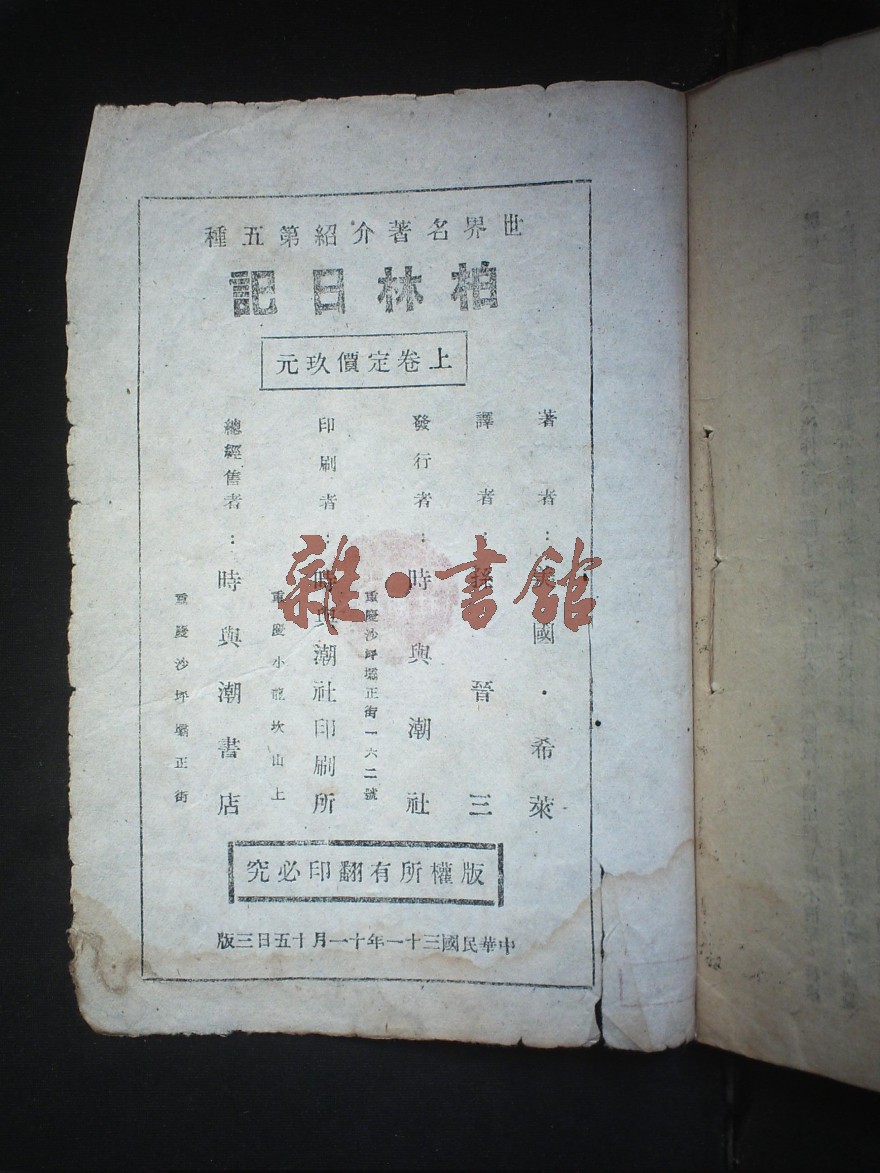 世界名著介紹第五種
柏林日記
上卷定價玖元
著者：美國·希萊
譯者：孫晉三
發行者：時與潮社
重慶沙坪壩正街一六二號
印刷者：時與潮社印刷所
重慶小龍坎山上
總經售者：時與潮書店
重慶沙坪壩正街
版權所有翻印必究
中華民國三十一年十一月十五日三版
雜·書館